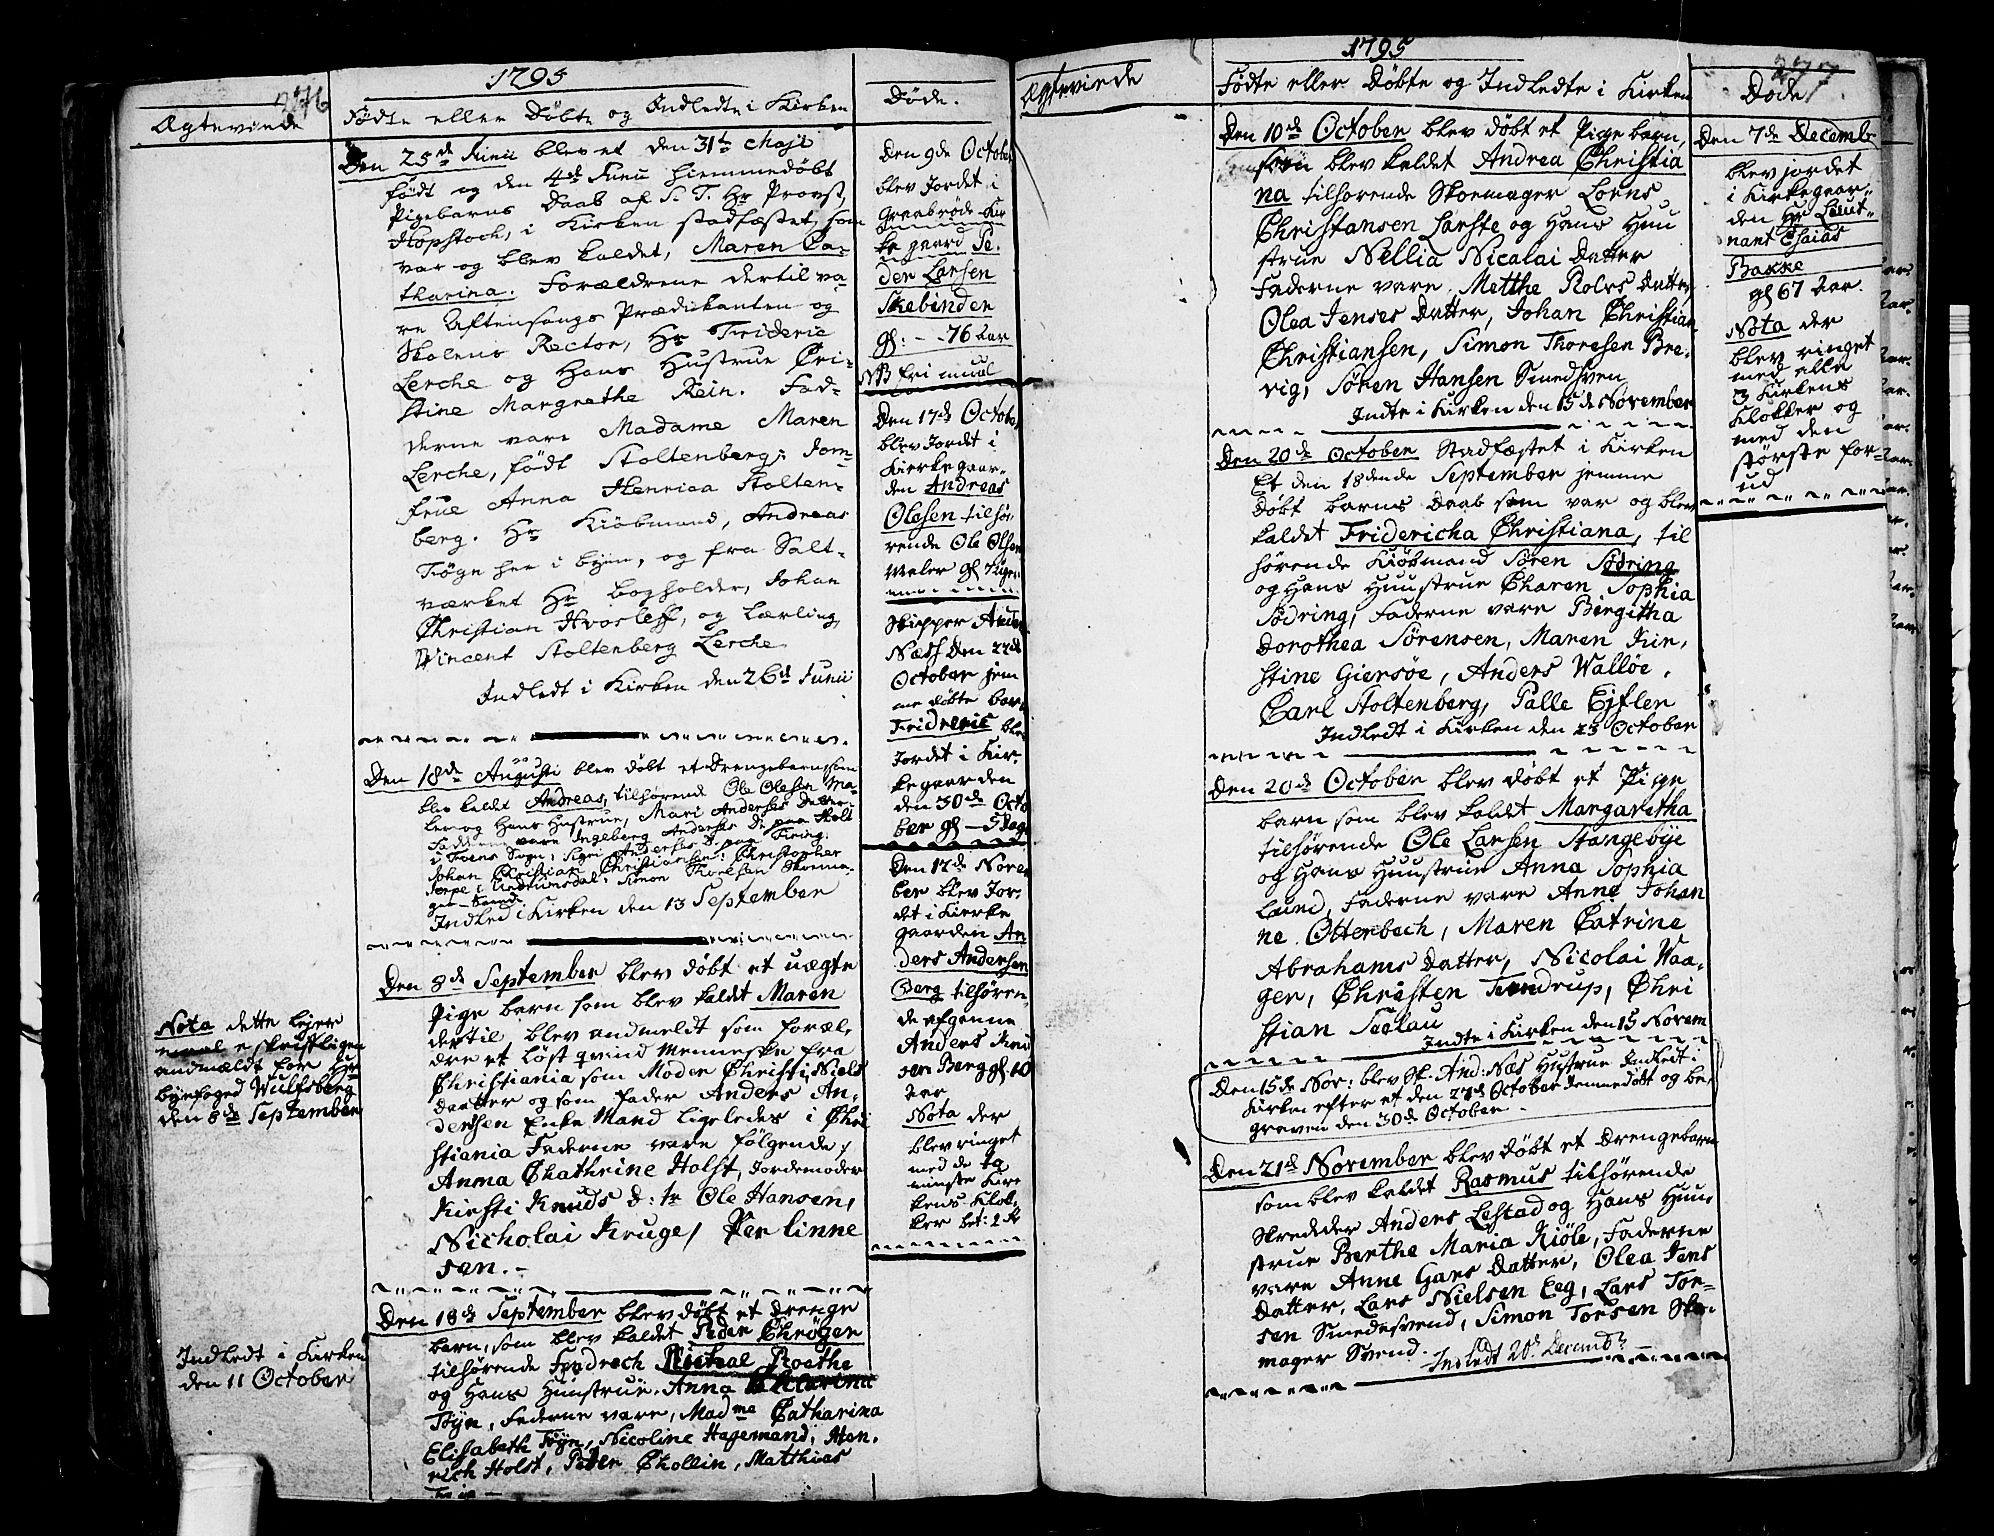 276
1795
Ægteviede
Fødte eller Døbte og Indledte i Kirken
Døde.
Den 25de Junii blev et den 31te Maji
født og den 4de Junii hiemmedøbt
Pigebarns Daab af S. T. Hr Provst
Hopstoch, i Kirken stadfæstet, som
var og blev kaldet, Maren Ca-
tharina. Forældrene dertil va-
re Aftensangs Prædikanten og
Skolens Rector, Hr Frideric
Lerche og Hans Hustrue Chri-
stine Margrethe Rein. Fad-
derne vare Madame Maren
Lerche, født Stoltenberg; Jom-
frue Anna Henrica Stolten-
berg. Hr Kiøbmand, Andreas
Føgn her i byen, og fra Salt-
værket Hr bogholder, Johan
Christian Hvosleff, og Lærling
Vincent Stoltenberg Lerche
Indledt i Kirken den 26d Junii
Den 18de Augusti blev døbt et Drengebarn som
blev kaldet Andreas, tilhørende Ole Olesen Ma-
ler og Hans Hustrue, Mari Anderses Datter
Fadderne vare Ingeberg Anderses D: paa Holt
i Soens Sogn; Sigri Anderses D: paa Fring;
Johan Christian Christiansen; Christopher
Jerpe i Undrumsdal; Simon Thoresen Skoma-
ger-Svend.
Indled i Kirken den 13 September
Den 8de September blev døbt et uægte
Pige barn som blev kaldet Maren
dertil blev andmeldt som foræl-
dre et løst qvind Menneske fra
Christiania som Moder Christi Niels
daatter og som fader Anders An-
dersen Enke Mand ligeledes i Chri
stiania Faderne vare følgende;
Anna Chathrine Holst, Jordemoder
Kirsti Knuds D: tr Ole Hansen,
Nicholai Kruge, Per linne
sen.-
Nota dette lejer
maal e skriftligen
andmældt for Hr
byefoged Wulfsberg
den 8de September
Den 18de September blev døbt et Drenge
barn, som blev kaldet Peder Chrøger
tilhørende Fridrech Michael Roethe
og Hans Huustrue. Anna Catarina
Føyn, Faderne vare, Madme Catharina
Elisabeth Føyn, Nicoline Hagemand, Hen-
rich Holst, Peter Chollin, Matthias
Indledt i Kirken
den 11 October
Den 9de October
blev Jordet i
Graabrøde-Kir
ke gaard Pe-
der Larsen
Skebinden
gl: - - 76 aar
NB fri muul
Den 17de October
blev Jordet i
Kierke gaar-
den Andreas
Olesen tilhø-
rende Ole Olsen
Maler gl 7 Uger
Skipper And:
Næss Den 22de
October jem
me døbte barn
Fridreric blev
Jordet i Kir-
kegaarden
den 30de Octo
ber gl - 5 dage
Den 12de Novem
ber blev Jor-
det i Kierke
gaarden An
ders Andersen
Berg tilhøren-
de afgenne
Anders Knu
sen Berg gl 10
aar
Nota der
blev ringet
med de to
minste Kir
kens Klok-
ker bet: 2 r
1795
277
Ægteviede
Fødte eller Døbte og Indledte i Kirken
Døde
Den 10de October blev døbt et Pige barn,
som blev kaldet Andrea Christia
na tilhørende Skomager Lorns
Christansen Larste og Hans Huu
strue Nellia Nicolai Datter
Faderne vare. Metthe Rolvs Datter
Olea Jenses Datter, Johan Christian
Christiansen, Simon Thoresen Bre-
vig, Søren Hansen Smedsven
Indte i Kirken den 15de November
Den 20de October Stadfæstet i Kirken
Et den 18dende September hemme
døbt barns Daab som var og blev
kaldet Fridericha Christiana, til
hørende Kiøbmand Søren Sødring
og Hans Huustrue Charen Sophia
Sødring, Faderne vare Birgitha
Dorothea Sørensen, Maren Kir-
stine Giersøe, Anders Walløe.
Carl Stoltenberg, Palle Ejfler
Indledt i Kirken den 25 October
Den 20de October blev døbt et Pige
barn som blev kaldet Margaretha
tilhørende Ole Larsen Stangebÿe
og Hans Huustrue Anna Sophia
Laund, Faderne vare Anne Johan
ne. Otterbech, Maren Catrine
Abrahams Datter, Nicolai Waa-
ger, Christen Tendrup, Chri
stian Seelau
Indte i Kirken den 15 Novem
Den 15de Nov: blev Sk: And: Næs Hustrue Indledt i
Kirken efter et den 27de October Jemmedøbt og be-
graven den 30de October -
Den 21de November blev døbt et Drengebarn
som blev kaldet Rasmus tilhørende
Skredder Anders Lestad og Hans Huu-
strue Berthe Maria Kiøle, Faderne
vare Anne Hans Datter, Olea Jens
Datter, Lars Nielsen Eeg, Lars Tor-
sen Smedesvend, Simon Torsen Sko-
mager Svend.
Indledt 20d Decembr
Den 7de Decembr
blev jordet
i Kirkegaar-
den Hr Leut-
nant Esaias
Bakke
gl 67 aar.
Nota der
blev ringet
med alle
3 Kirkens
Klokker og
med den
største for-
ud